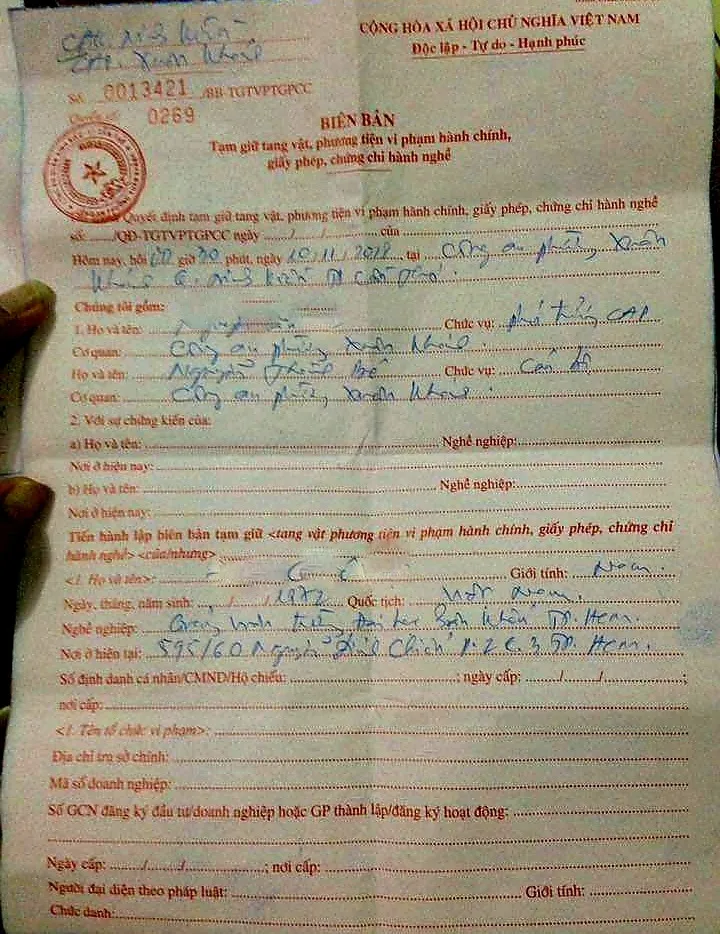 CỘNG HÒA XÃ HỘI CHỦ NGHĨA VIỆT NAM
CAQ. Ninh Kiều
Độc lập - Tự do - Hạnh phúc
CAP. Xuân Khánh
Số: 0013421 /BB-TGTVPTGPCC
Quyển số: 0269
BIÊN BẢN
Tạm giữ tang vật, phương tiện vi phạm hành chính,
giấy phép, chứng chỉ hành nghề
Quyết định tạm giữ tang vật, phương tiện vi phạm hành chính, giấy phép, chứng chỉ hành nghề
số: ...../QĐ-TGTVPTGPCC ngày ....../....../...... của ......
Hôm nay, hồi giờ 30 phút, ngày 10/11/2018 tại Công an phường Xuân
Khánh Q. Ninh Kiều TP Cần Thơ.
Chúng tôi gồm:
1. Họ và tên: Chức vụ: phó trưởng CAP
Cơ quan: Công an phường Xuân Khánh.
Họ và tên: Nguyễn Thanh Chức vụ: Cán bộ
Cơ quan: Công an phường Xuân Khánh.
2. Với sự chứng kiến của:
a) Họ và tên: ...... Nghề nghiệp: ......
Nơi ở hiện nay: ......
b) Họ và tên: ...... Nghề nghiệp: ......
Nơi ở hiện nay: ......
Tiến hành lập biên bản tạm giữ <tang vật phương tiện vi phạm hành chính, giấy phép, chứng chỉ
hành nghề> <của/nhưng> ......
<1. Họ và tên>: Giới tính: Nam.
Ngày, tháng, năm sinh: ..../..../1972 Quốc tịch: Việt Nam.
Nghề nghiệp: trường Đại học TP. Hcm.
Nơi ở hiện tại: 595/60 Nguyễn Đình Chiểu P.2 Q.3 TP. Hcm.
Số định danh cá nhân/CMND/Hộ chiếu: ......; ngày cấp: ....../....../......;
nơi cấp: ......
<1. Tên tổ chức vi phạm>: ......
Địa chỉ trụ sở chính: ......
Mã số doanh nghiệp: ......
Số GCN đăng ký đầu tư/doanh nghiệp hoặc GP thành lập/đăng ký hoạt động: ......
Ngày cấp: ....../....../......; nơi cấp: ......
Người đại diện theo pháp luật: ...... Giới tính: ......
Chức danh: ......